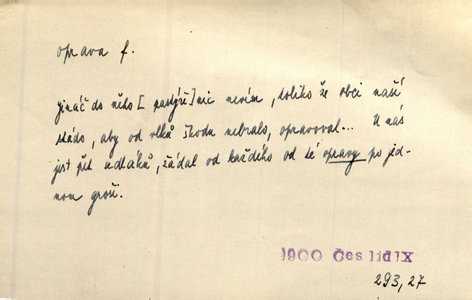 oprava f.
Jináč do něho [pastýře] nic nevím, toliko že obci naší
stádo, aby od vlků škodu nebralo, opravoval... U nás
jest pět sedláků, žádal od každého od té opravy po jed-
nom groši.
1900 Čes lid IX
293,27